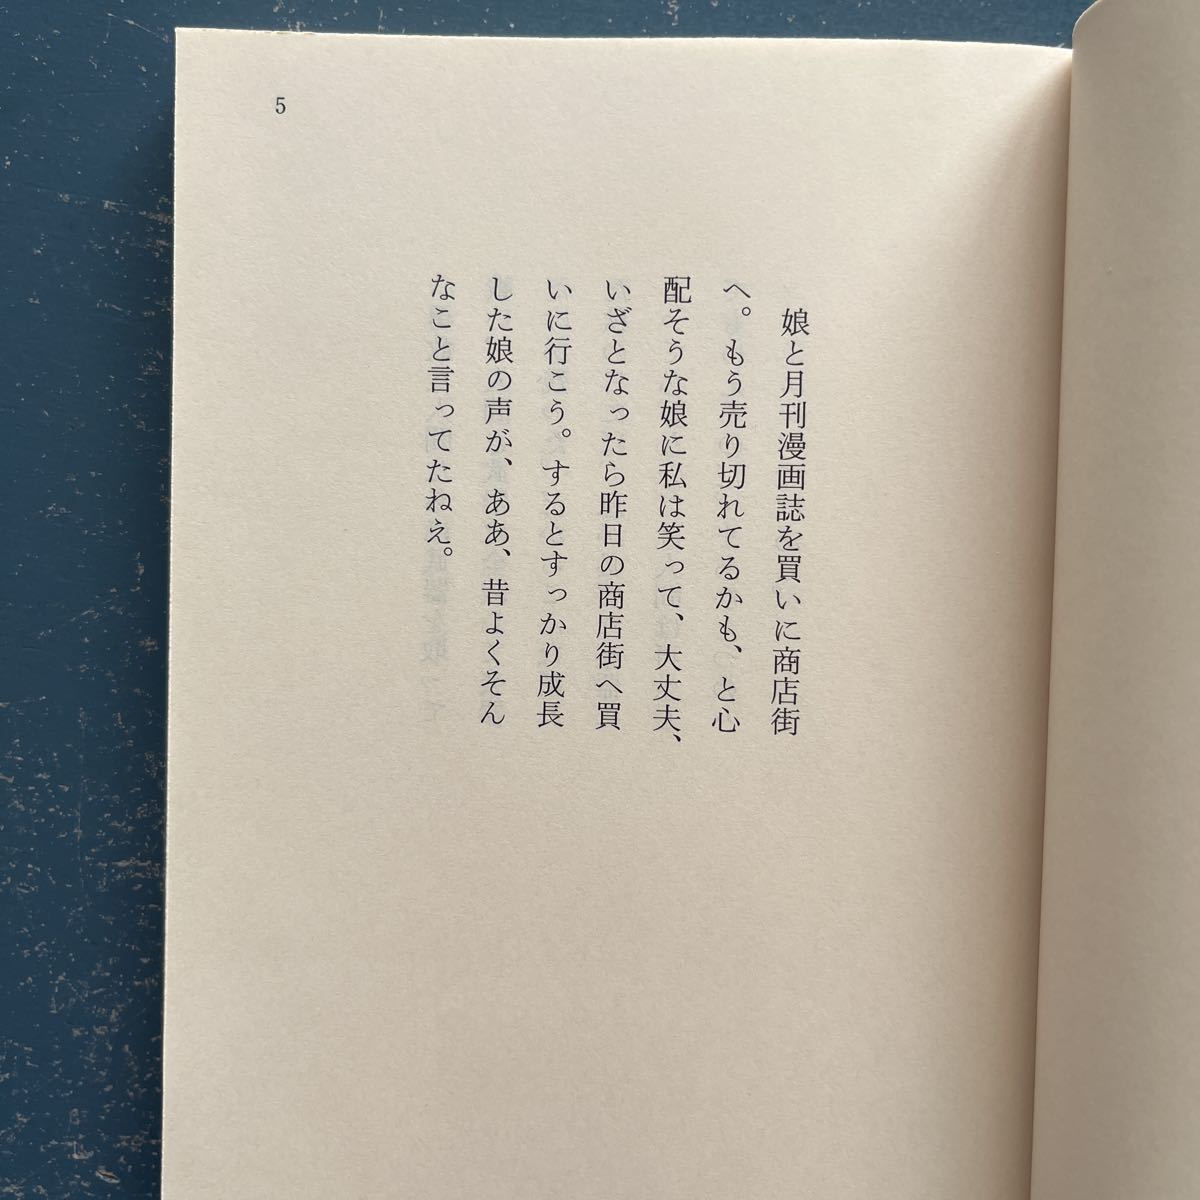 5
娘と月刊漫画誌を買いに商店街
へ。もう売り切れてるかも、と心
配そうな娘に私は笑って、大丈夫、
いざとなったら昨日の商店街へ買
いに行こう。するとすっかり成長
した娘の声が、ああ、昔よくそん
なこと言ってたねえ。